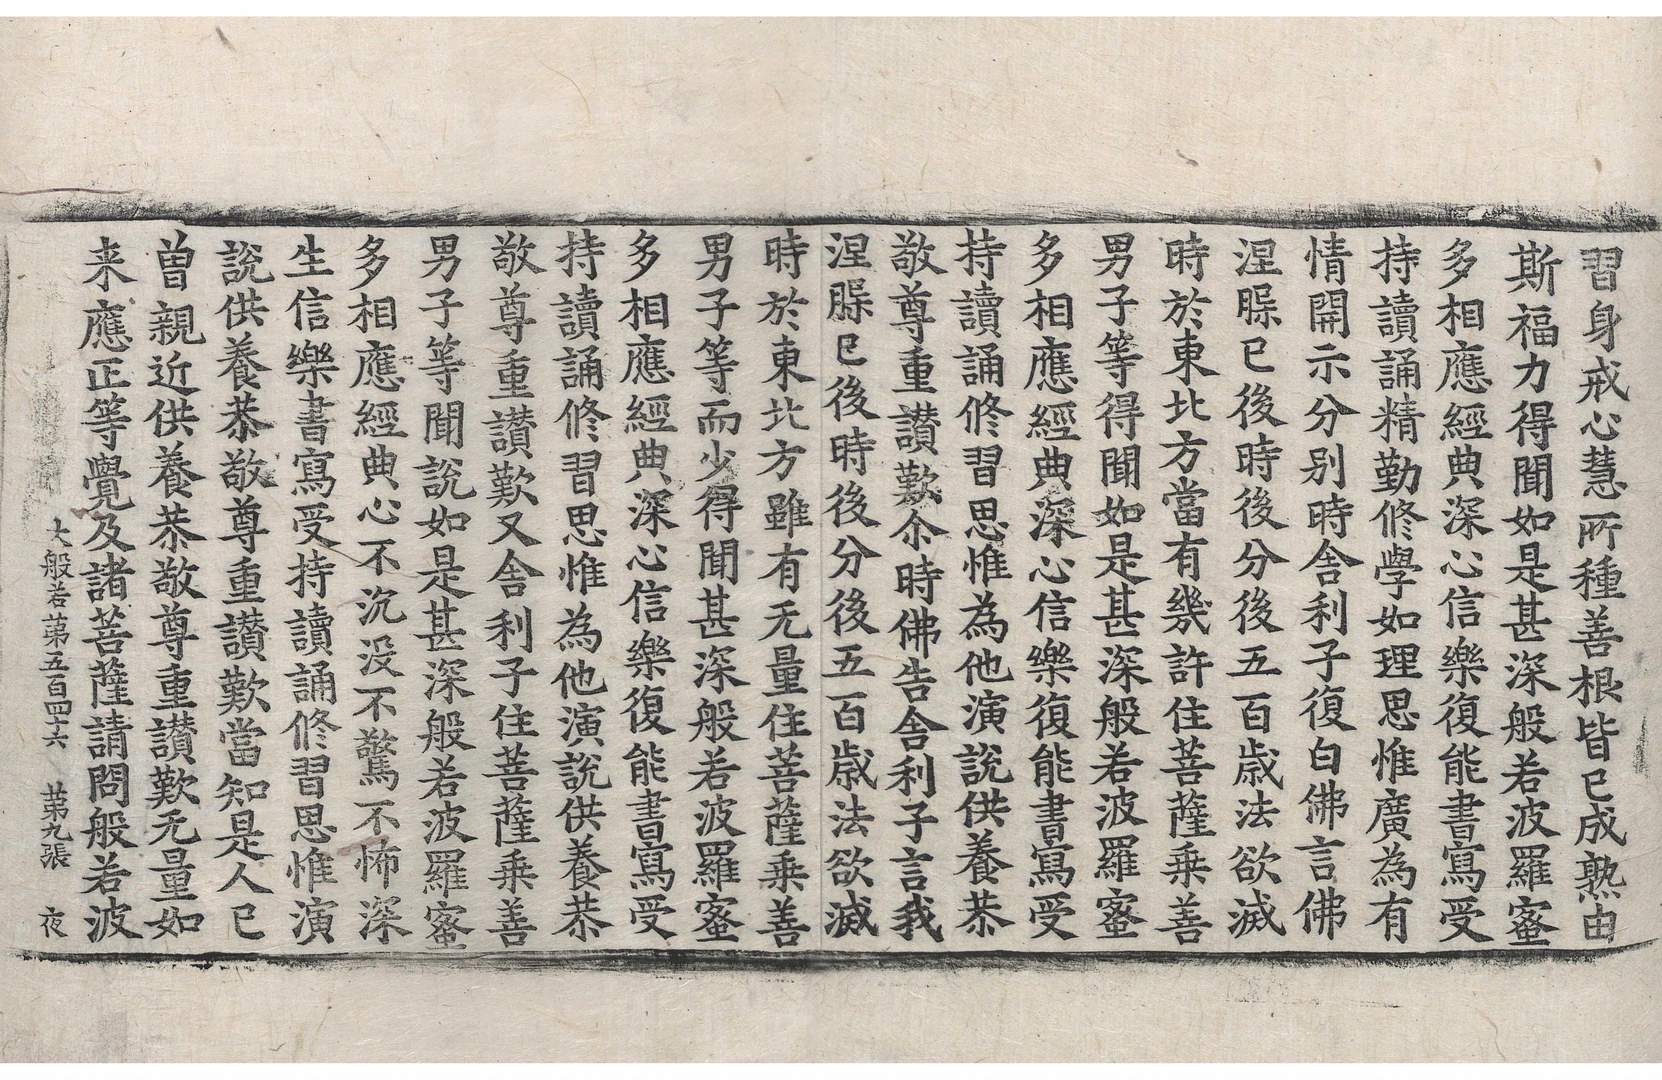 習身戒心慧所種善根皆已成熟由
斯福力得聞如是甚深般若波羅蜜
多相應經典深心信樂復能書寫受
持讀誦精勤修學如理思惟廣為有
情開示分別時舍利子復白佛言佛
涅槃已後時後分後五百歲法欲滅
時於東北方當有幾許住菩薩乗善
男子等得聞如是甚深般若波羅蜜
多相應經典深心信樂復能書寫受
持讀誦修習思惟為他演說供養恭
敬尊重讃歎尒時佛告舍利子言我
涅槃已後時後分後五百歲法欲滅
時於東北方雖有无量住菩薩乗善
男子等而少得聞甚深般若波羅蜜
多相應經典深心信樂復能書寫受
持讀誦修習思惟為他演說供養恭
敬尊重讃歎又舍利子住菩薩乗善
男子等聞說如是甚深般若波羅蜜
多相應經典心不沉没不驚不怖深
生信樂書寫受持讀誦修習思惟演
說供養恭敬尊重讃歎當知是人已
曽親近供養恭敬尊重讃歎无量如
来應正等覺及諸菩薩請問般若波
大般若第五百四十六 第九張 夜